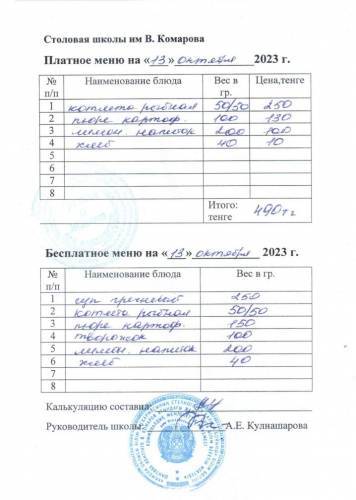 Столовая школы им В. Комарова
Платное меню на «13» октября 2023 г.
№ п/п Наименование блюда Вес в гр. Цена,тенге
1 котлета рыбная 50/50 250
2 пюре картоф. 100 130
3 лимон. напиток 200 100
4 хлеб 40 10
5
6
7
8
Итого: тенге 490 тг
Бесплатное меню на «13» октября 2023 г.
№ п/п Наименование блюда Вес в гр.
1 суп гречневый 250
2 котлета рыбная 50/50
3 пюре картоф. 150
4 творожок 100
5 лимон. напиток 200
6 хлеб 40
7
8
Калькуляцию составил:
Руководитель школы: А.Е. Кулнашарова